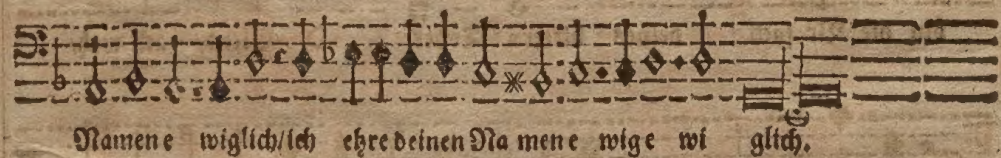 Namen e wiglich/ich ehre deinen Na men e wig e wi glich.